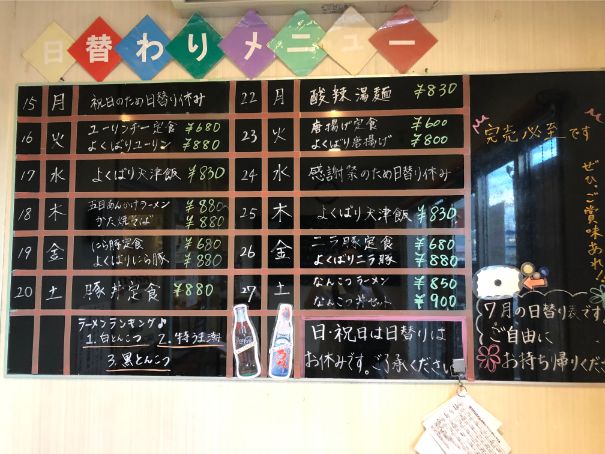 日替わりメニュー
15 月 祝日のため日替り休み
16 火 ユーリンチー定食 ¥680
よくばりユーリン ¥880
17 水 よくばり天津飯 ¥830
18 木 五目あんかけラーメン ¥880
かた焼そば ¥880
19 金 にら豚定食 ¥680
よくばりにら豚 ¥880
20 土 豚丼定食 ¥880
ラーメンランキング♪
1.白とんこつ 2.特うま潮
3.黒とんこつ
22 月 酸辣湯麺 ¥830
23 火 唐揚げ定食 ¥600
よくばり唐揚げ ¥800
24 水 感謝祭のため日替り休み
25 木 よくばり天津飯 ¥830
26 金 ニラ豚定食 ¥680
よくばりニラ豚 ¥880
27 土 なんこつラーメン ¥850
なんこつ丼セット ¥900
日・祝日は日替りは
お休みです。ご了承ください。
完売必至です
ぜひ、ご賞味あれ!
7月の日替り表です。
ご自由に
お持ち帰りくださ